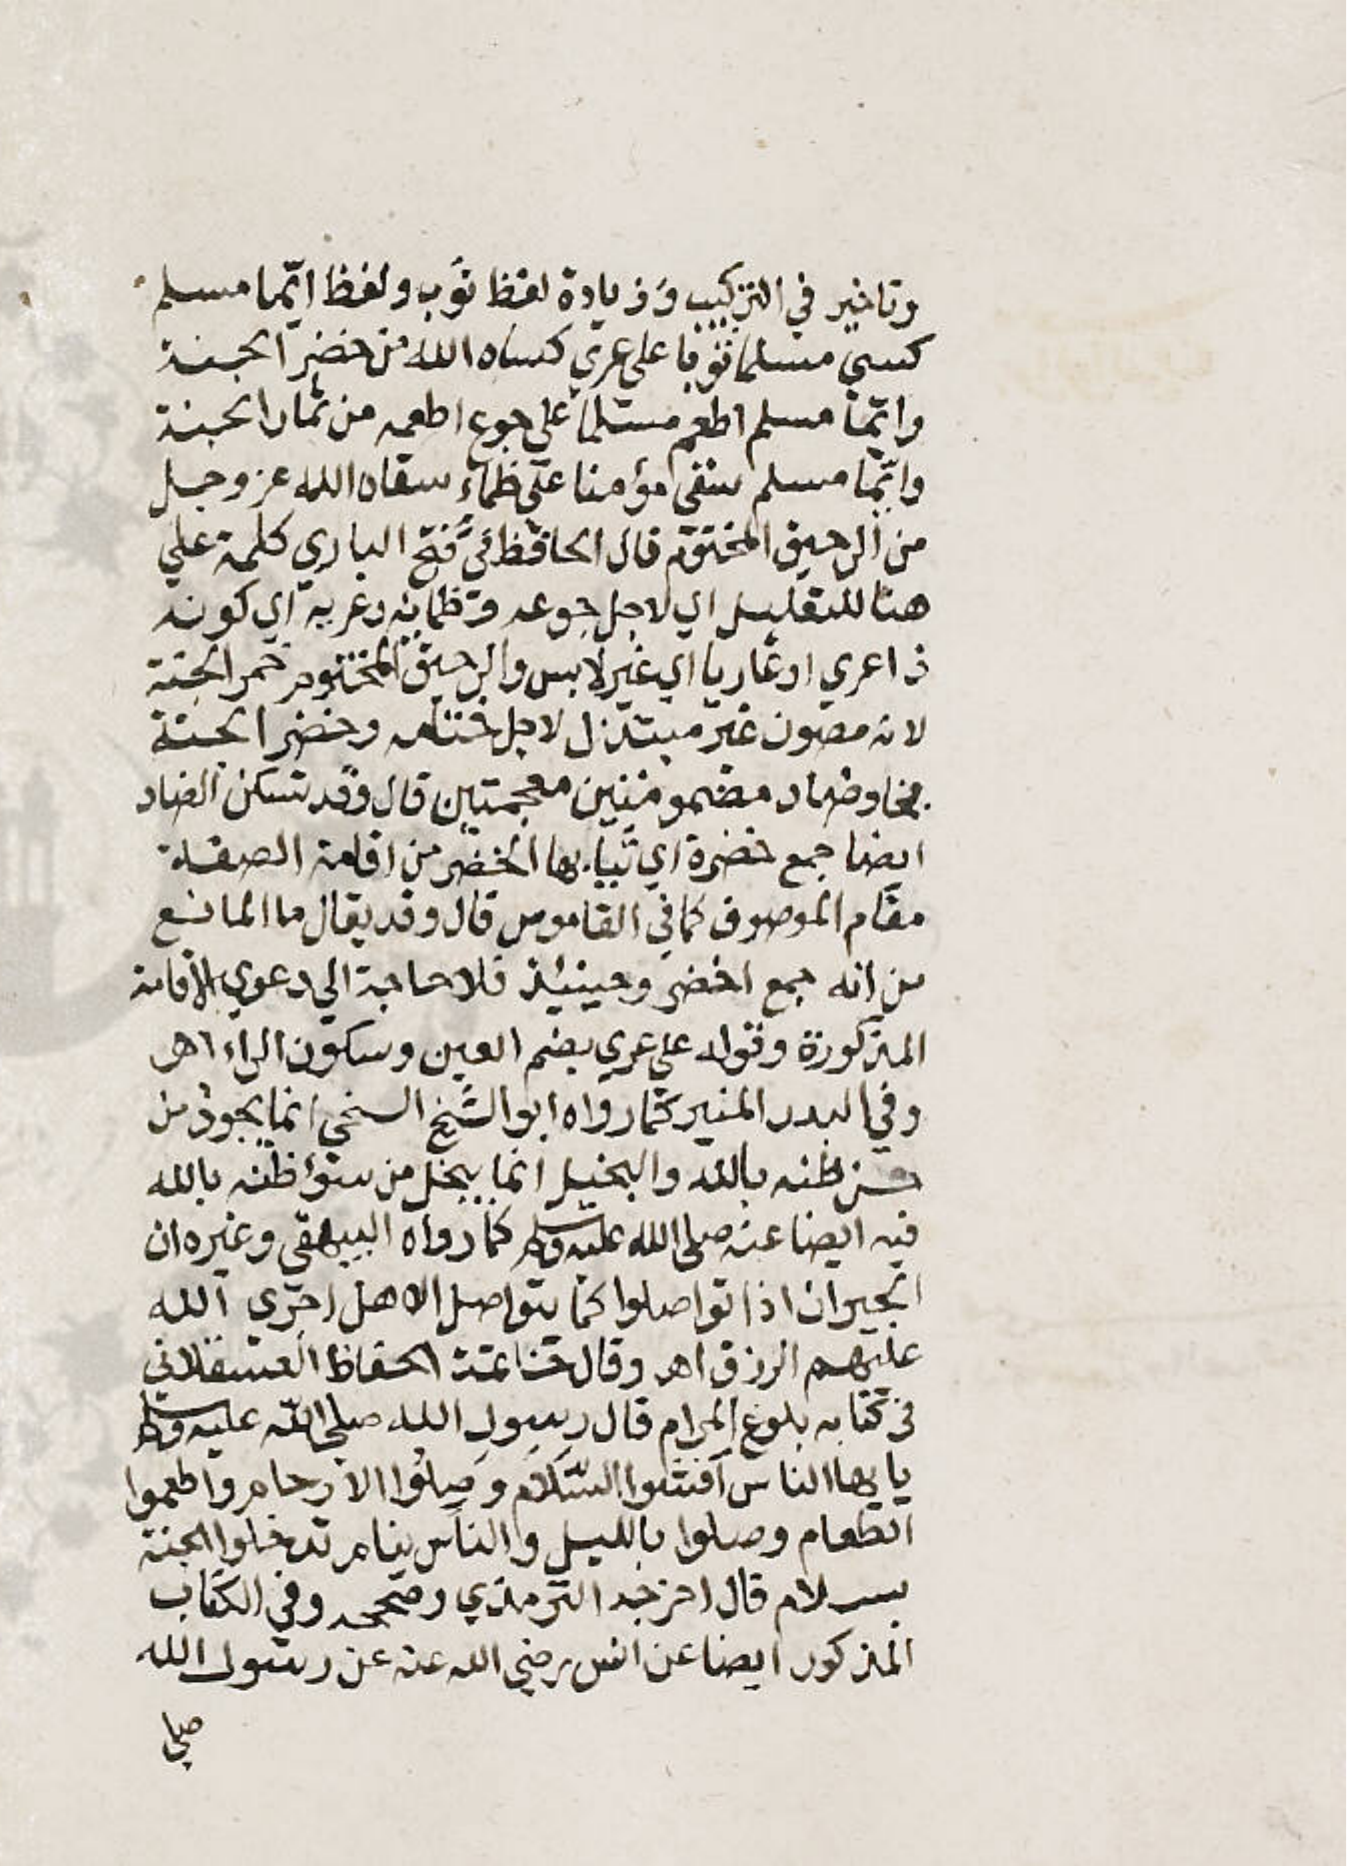 وتاخير في التركيب وزيادة لفظ ثوب ولفظ ايّما مسلم
كسي مسلما ثوبا علي عري كساه الله من خضر الجنة
وايّما مسلم اطعم مسلما علي جوع اطعمه من ثمار الجنة
وايّما مسلم سقي مؤمنا علي ظماء سقاه الله عز وجل
من الرحيق المختوم قال الحافظ في فتح الباري كلمة علي
هنا للتعليل اي لاجل جوعه وظمائه وعريه اي كونه
ذا عري او عاريا اي غير لابس والرحيق المختوم خمر الجنة
لانه مصون غير مبتذل لاجل ختامه وخضر الجنة
بخاء وضاد مضمومتين معجمتين قال وقد تسكن الضاد
ايضا جمع خضرة اي ثيابها الخضر من اقامة الصفة
مقام الموصوف كما في القاموس قال وقد يقال ما المانع
من انه جمع اخضر وحينئذ فلا حاجة الي دعوي الاقامة
المذكورة وقوله علي عري بضم العين وسكون الراء اهـ
وفي البدر المنير كما رواه ابو الشيخ السخي انما يجود من
حسن ظنه بالله والبخيل انما يبخل من سوء ظنه بالله
فيه ايضا عنه صلي الله عليه وسلم كما رواه البيهقي وغيره ان
الجيران اذا تواصلوا كما يتواصل الاهل اجري الله
عليهم الرزق اهـ وقال خاتمة الحفاظ العسقلاني
في كتابه بلوغ المرام قال رسول الله صلي الله عليه وسلم
يايها الناس افشوا السَّلام وَصِلُوا الارحام واطعموا
الطعام وصلوا بالليل والناس نيام تدخلوا الجنة
بسلام قال اخرجه الترمذي وصححه وفي الكتاب
المذكور ايضا عن انس رضي الله عنه عن رسول الله
صلي